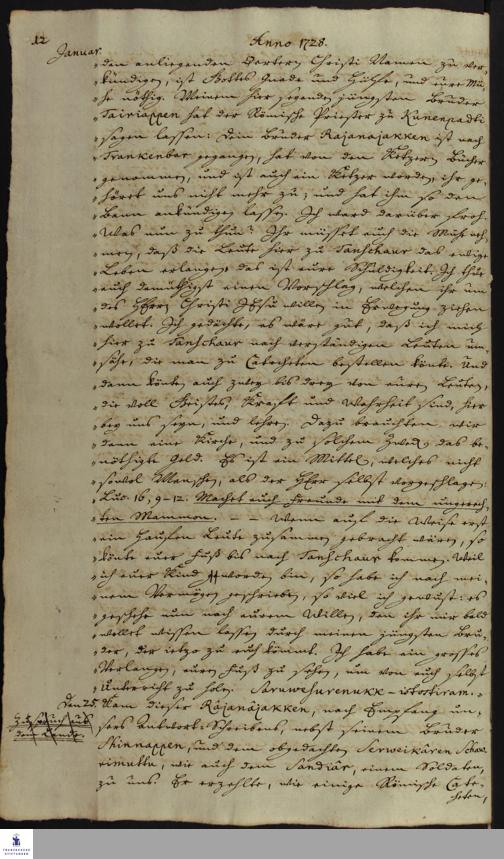 12
Anno 1728.
Januar.
„den anliegenden Oertern Christi Namen zu ver-
„kündigen, ist Gottes Gnade und Hülffe, und eure Mü-
„he nöthig. Meinem hier seyenden jüngsten Bruder
„Tairiappen hat der Römische Priester zu Kunenpadti
„sagen lassen: Dein Bruder Rajanajakken ist nach
„Trankenbar gegangen, hat von den Ketzern Bücher
„genommen, und ist auch ein Ketzer worden, ihr ge-
„höret uns nicht mehr zu; und hat ihm so den
„Bann ankündigen lassen. Ich ward darüber froh.
„Was nun zu thun? Ihr müsset euch die Mühe neh-
„men, daß die Leute hier zu Tanschaur das ewige
„Leben erlangen, das ist eure Schuldigkeit. Ich thue
„euch demüthigst einen Vorschlag, welchen ihr um
„des HErrn Christi JEsu willen in Erwegung ziehen
„wollet. Ich gedächte, es wäre gut, daß ich mich
„hier zu Tanschaur nach verständigen Leuten um-
„sähe, die man zu Catecheten bestellen könte. Und
„dann könten auch zwey bis drey von euren Leuten,
„die voll Geistes, Krafft und Wahrheit sind, hier
„bey uns seyn, und lehren. Dazu brauchten wir
„denn eine Kirche, und zu solchem Zweck das be-
„nöthigte Geld. Es ist ein Mittel, welches nicht
„sowol Menschen, als der HErr selbst vorgeschlagen:
„Luc. 16, 9-12. Machet euch Freunde mit dem ungerech-
„ten Mammon. – – Wenn auf die Weise erst
„ein Hauffen Leute zusammen gebracht wären, so
„könte euer Fuß bis nach Tanschaur kommen. Weil
„ich euer Kind worden bin, so habe ich nach mei-
„nem Vermögen geschrieben, so viel ich gewust: es
„geschehe nun nach eurem Willen, den ihr mir bald
„wollet wissen lassen durch meinen jüngsten Bru-
„der, der ietzo zu euch kömmt. Ich habe ein grosses
„Verlangen, euren Fuß zu sehen, um von euch selbst
„Unterricht zu holen. Saruwesurenukk-istotiram.„
Den 25. Kam dieser Rajanajakken, nach Empfang un-
sers Antwort-Schreibens, nebst seinem Bruder
Skinnappen, und dem obgedachten Serweikaren Schaw-
rimuttu, wie auch dem Sandiar, einem Soldaten,
zu uns. Er erzehlte, wie einige Römische Cate-
cheten,
FRANCKESCHE
STIFTUNGEN